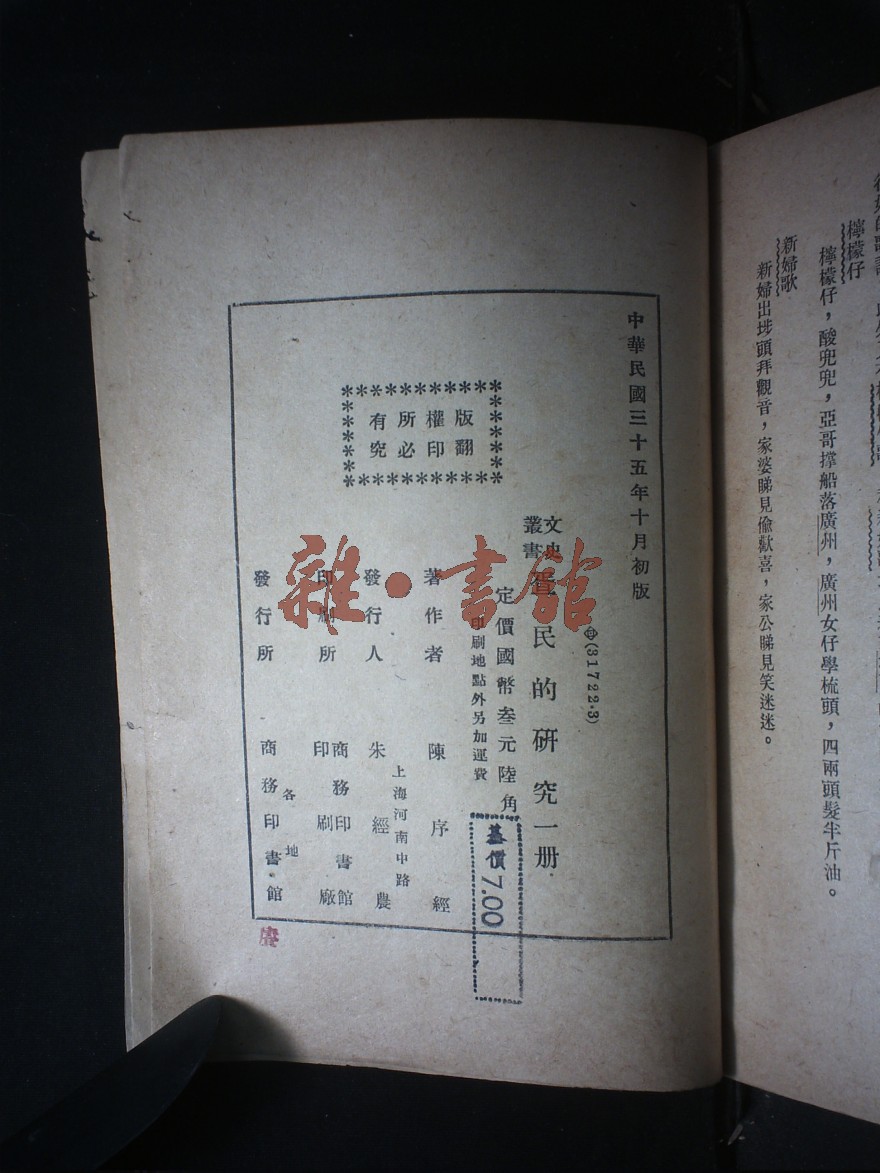 檸檬仔
檸檬仔，酸兜兜，亞哥撑船落廣州，廣州女仔學梳頭，四兩頭髮半斤油。
新婦歌
新婦出埗頭拜觀音，家婆睇見偷歡喜，家公睇見笑迷迷。
中華民國三十五年十月初版
(81722·3)
文史叢書
蜑民的研究一册
定價國幣叁元陸角
印刷地點外另加運費
基價7.00
版權所有
翻印必究
著作者 陳序經
發行人 朱經農
上海河南中路
印刷所 商務印書館印刷廠
發行所 各地商務印書館
雜·書館